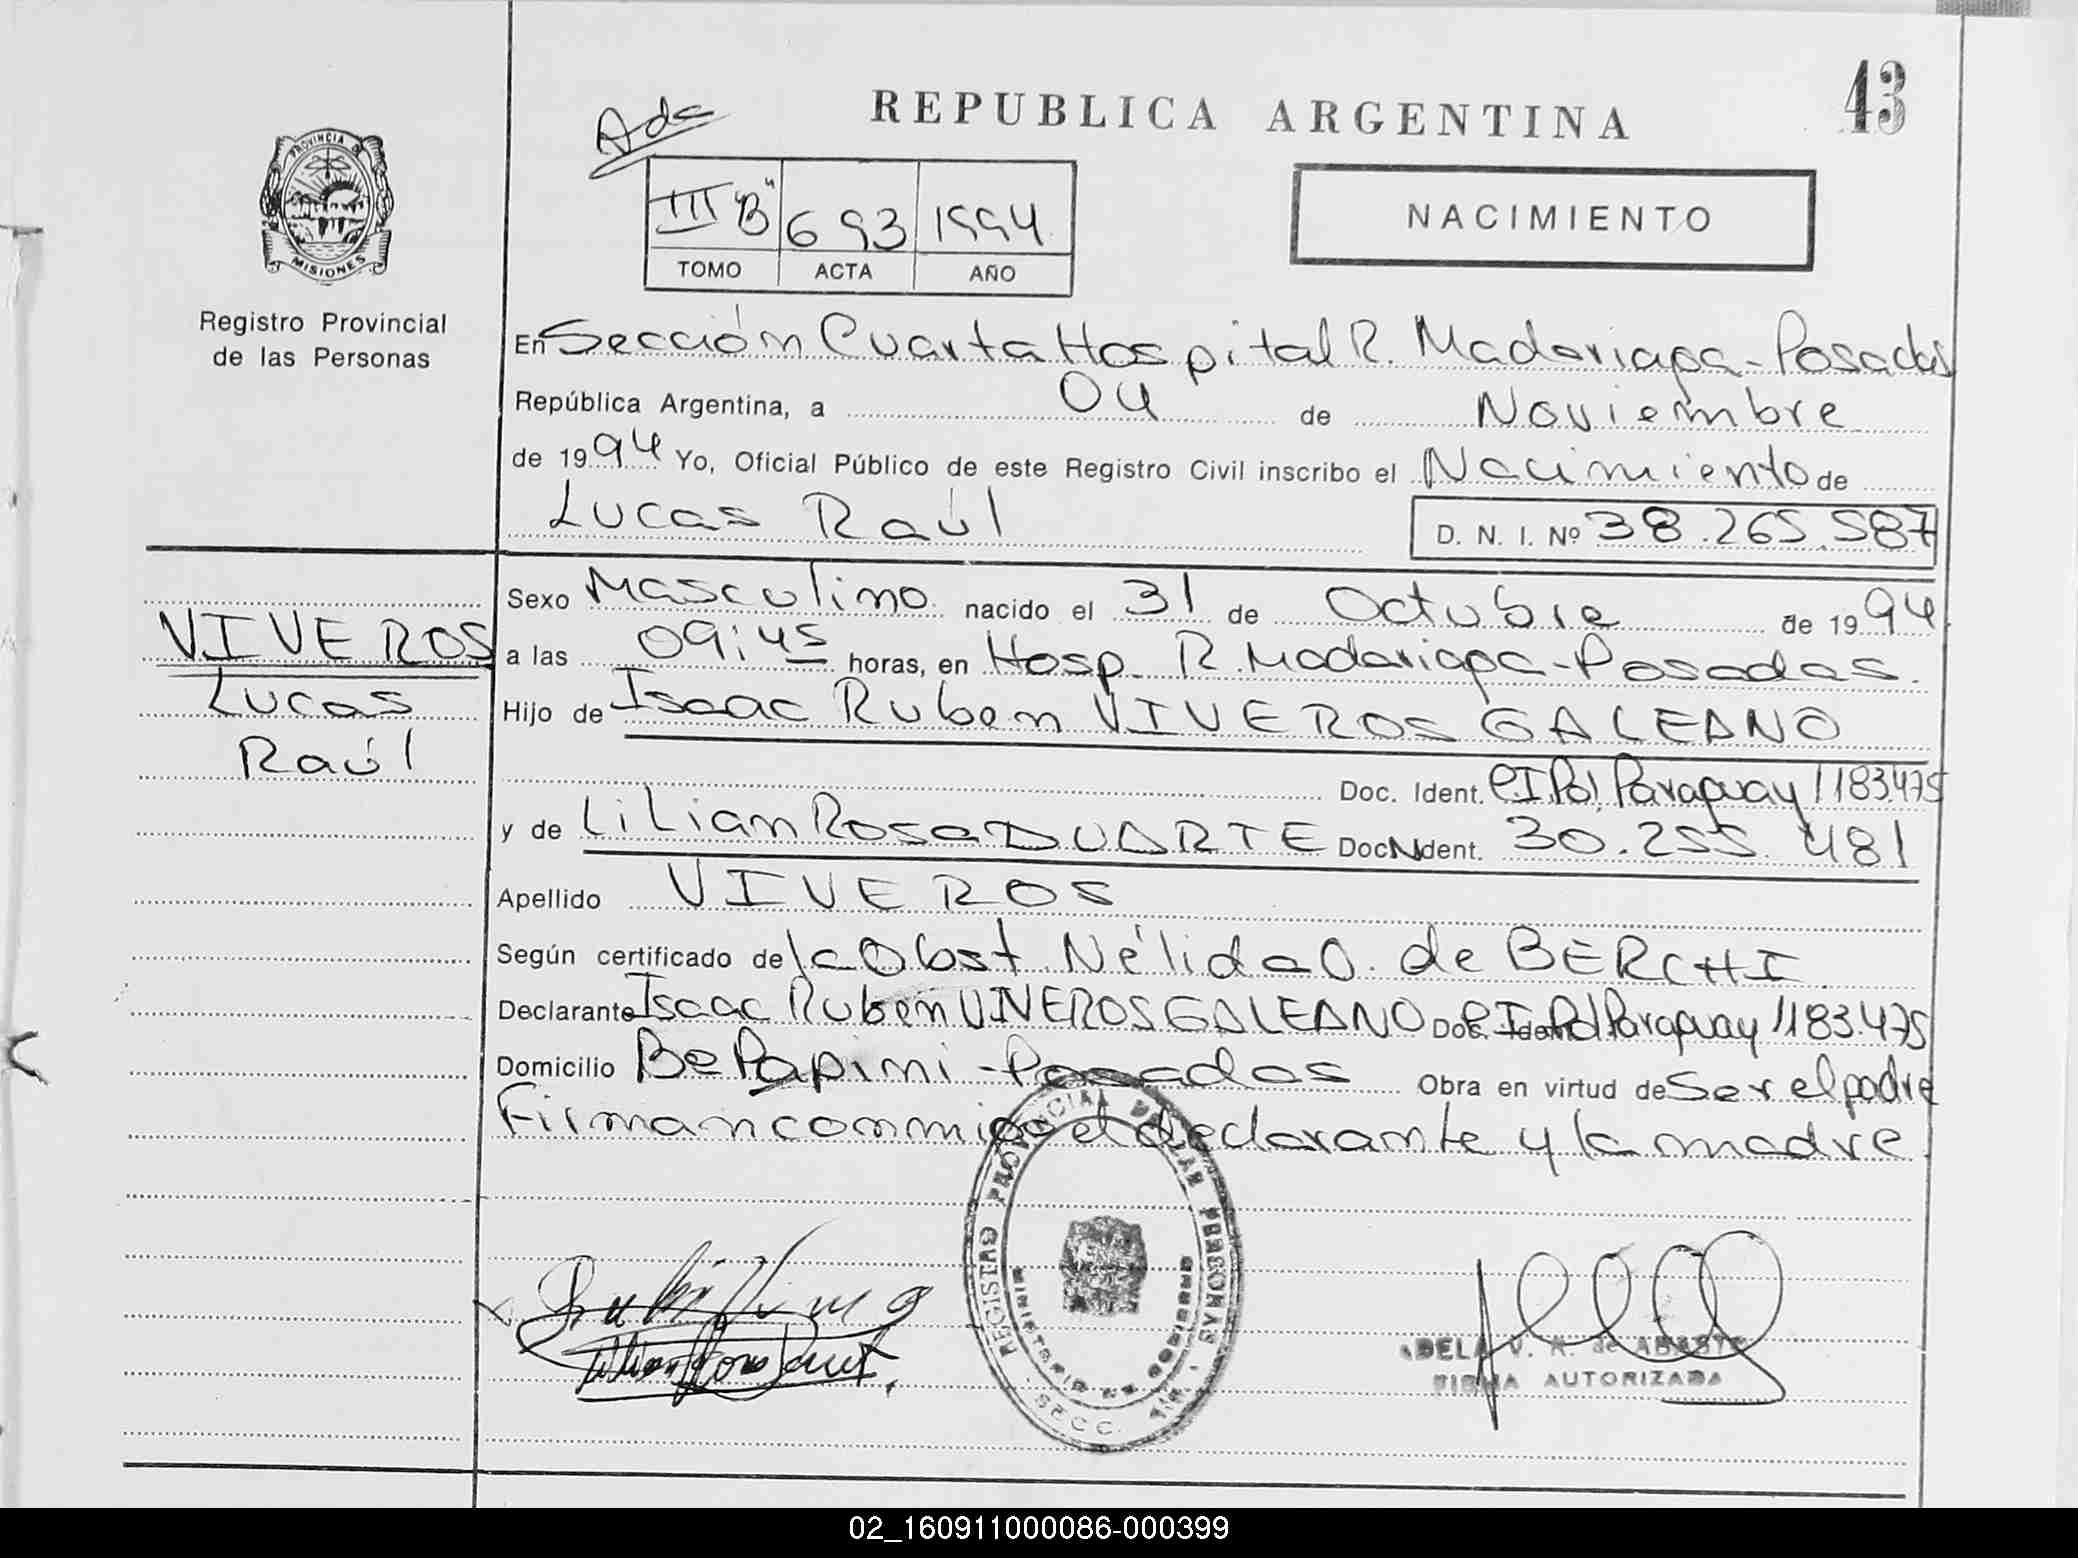 43
REPUBLICA ARGENTINA
Ada
PROVINCIA DE
MISIONES
III "B" 693 1994
TOMO ACTA AÑO
NACIMIENTO
Registro Provincial
de las Personas
En Sección Cuarta Hospital R. Madariaga - Posadas
República Argentina, a 04 de Noviembre
de 1994 Yo, Oficial Público de este Registro Civil inscribo el Nacimiento de
Lucas Raúl D. N. I. Nº 38.265.587
VIVEROS
Lucas
Raúl
Sexo Masculino nacido el 31 de Octubre de 1994
a las 09:45 horas, en Hosp. R. Madariaga - Posadas.
Hijo de Isaac Ruben VIVEROS GALEANO
Doc. Ident. C.I.Pol. Paraguay 1183.475
y de Lilian Rosa DUARTE Doc. Ident. 30.255.481
Apellido VIVEROS
Según certificado de la Obst. Nélida O. de BERCHI
Declarante Isaac Ruben VIVEROS GALEANO Doc. Ident. C.I.Pol Paraguay 1183.475
Domicilio Be Papini - Posadas Obra en virtud de Ser el padre
Firman conmigo el declarante y la madre
REGISTRO PROVINCIAL DE LAS PERSONAS
MINISTERIO DE GOBIERNO
ADELA V. R. de
FIRMA AUTORIZADA
02_160911000086-000399